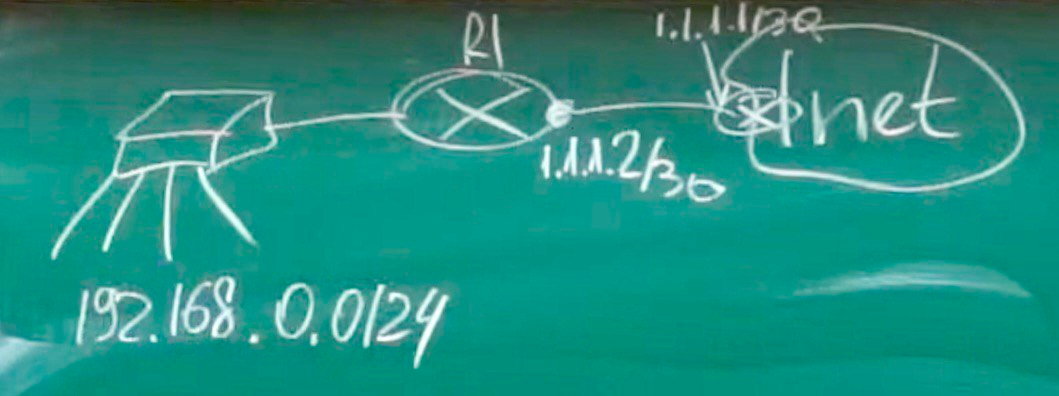 R1
1.1.1.1/30
Inet
1.1.1.2/30
192.168.0.0/24